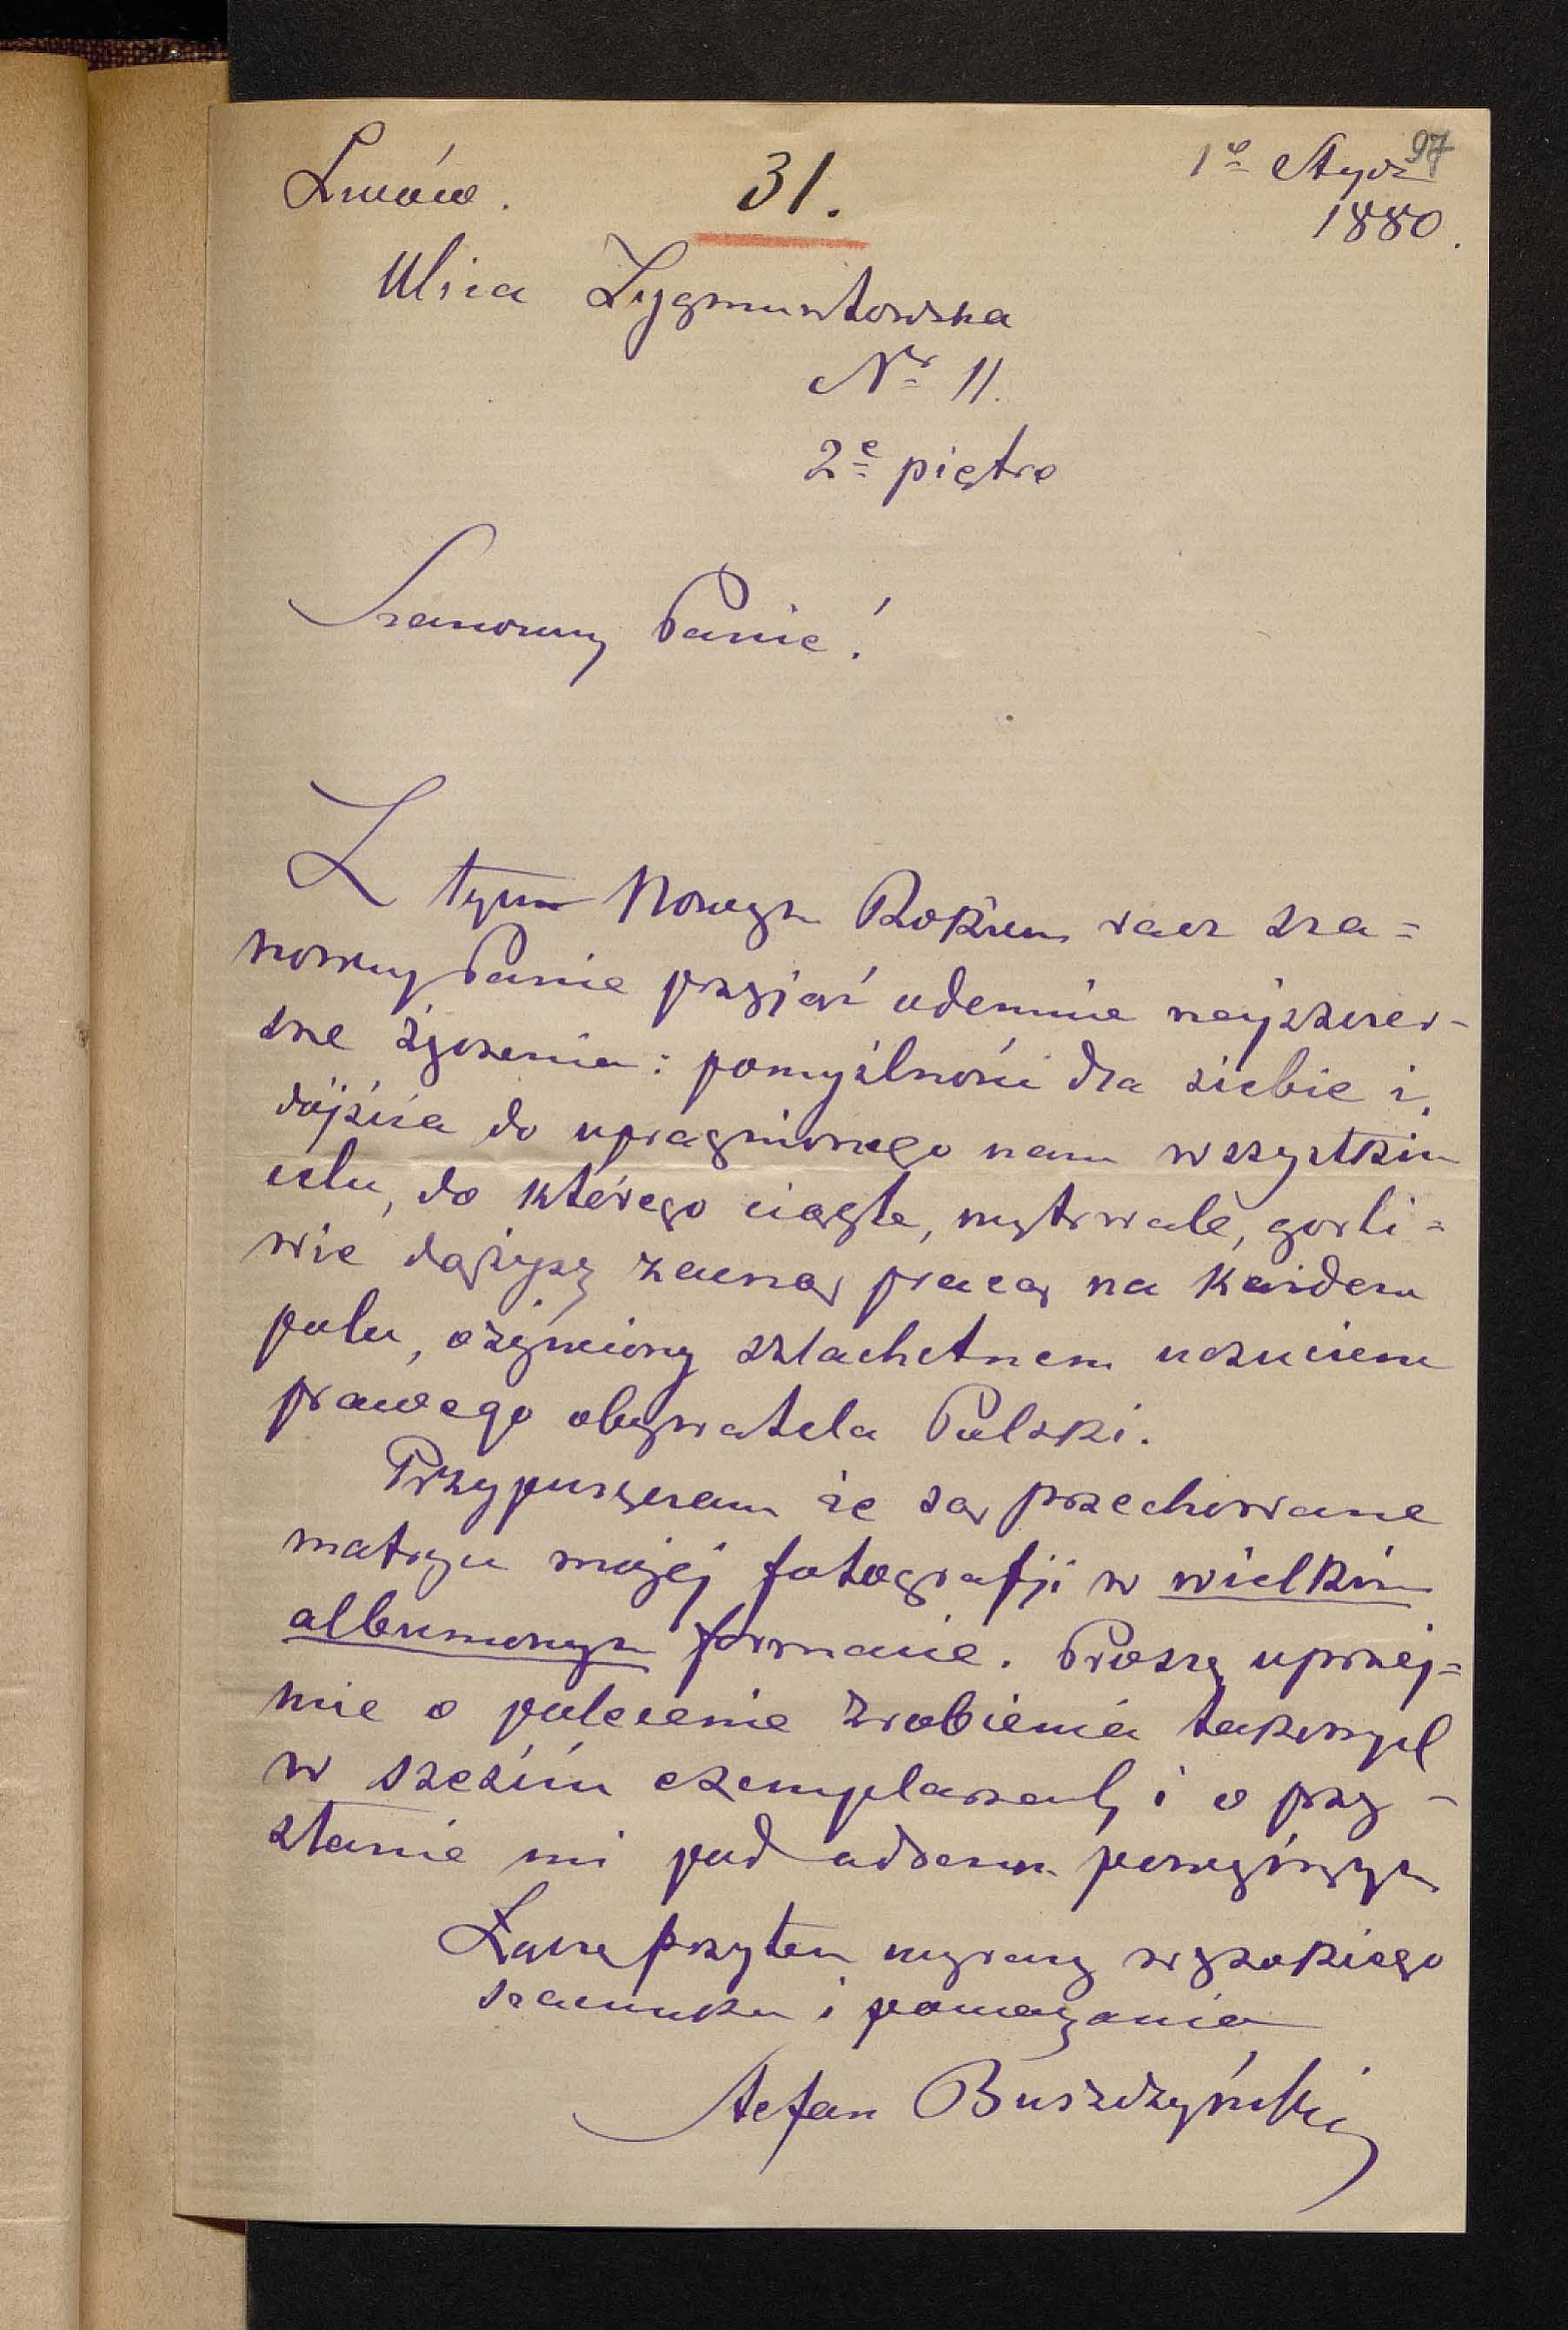 97
Lwów. 31. 1e Stycz
1880.
Ulica Zygmuntowska
Nr 11.
2e piętro
Szanowny Panie!
Z tym Nowym Rokiem racz sza=
nowny Panie przyjąć odemnie najszczer-
sze życzenia: pomyślności dla siebie i
dójścia do upragnionego nam wszystkim
celu, do którego ciągle, wytrwale, gorli=
wie dążysz zacną pracą na każdem
polu, ożywiony szlachetnem uczuciem
prawego obywatela Polski.
Przypuszczam że są przechowane
matryce mojéj fotografji w wielkim
albumowym formacie. Proszę uprzej=
mie o polecenie zrobienia takowych
w sześciu exemplarzach i o przy-
słanie mi pod adresem powyższym
Łączę przytem wyrazy wysokiego
szacunku i poważania
Stefan Buszczyński